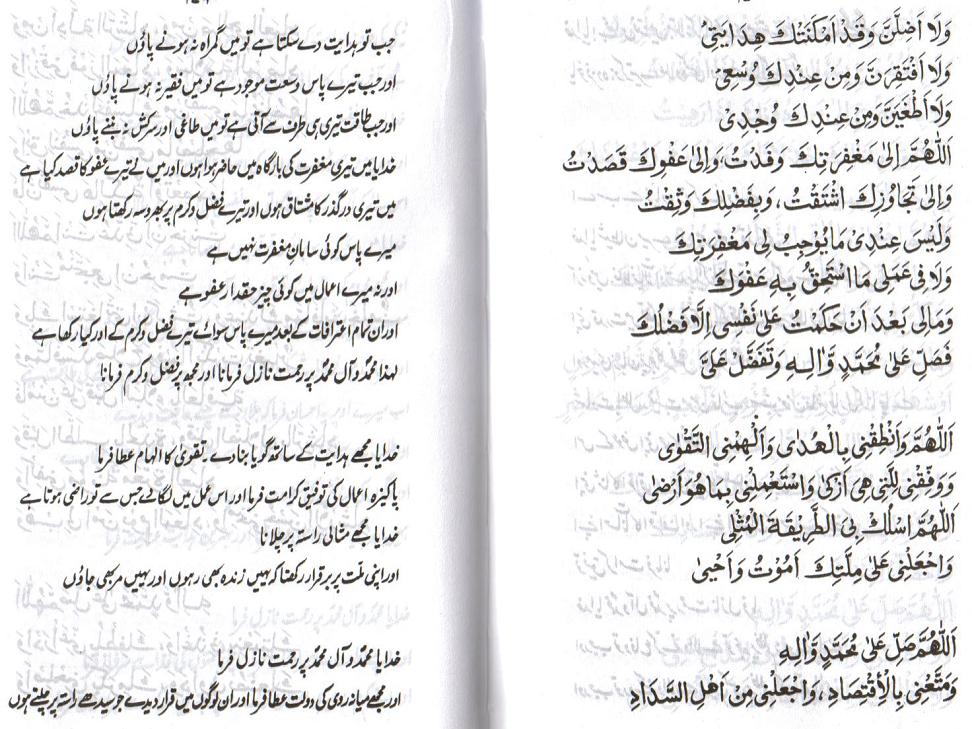 وَلَا اَضِلَّنَّ وَقَدْ اَمْكَنَتْكَ هِدَايَتِيْ
وَلَا اَفْتَقِرَنَّ وَمِنْ عِنْدِكَ وُسْعِيْ
وَلَا اَطْغَيَنَّ وَمِنْ عِنْدِكَ وُجْدِيْ
اَللّٰهُمَّ اِلٰى مَغْفِرَتِكَ وَفَدْتُ وَاِلٰى عَفْوِكَ قَصَدْتُ
وَاِلٰى تَجَاوُزِكَ اشْتَقْتُ، وَبِفَضْلِكَ وَثِقْتُ
وَلَيْسَ عِنْدِيْ مَا يُوْجِبُ لِيْ مَغْفِرَتَكَ
وَلَا فِيْ عَمَلِيْ مَا اسْتَحِقُّ بِهٖ عَفْوَكَ
وَمَا لِيْ بَعْدَ اَنْ حَكَمْتُ عَلٰى نَفْسِيْ اِلَّا فَضْلُكَ
فَصَلِّ عَلٰى مُحَمَّدٍ وَّاٰلِهٖ وَتَفَضَّلْ عَلَيَّ
اَللّٰهُمَّ وَاَنْطِقْنِيْ بِالْهُدٰى وَاَلْهِمْنِيْ التَّقْوٰى
وَوَفِّقْنِيْ لِلَّتِيْ هِيَ اَزْكٰى وَاسْتَعْمِلْنِيْ بِمَا هُوَ اَرْضٰى
اَللّٰهُمَّ اسْلُكْ بِيَ الطَّرِيْقَةَ الْمُثْلٰى
وَاجْعَلْنِيْ عَلٰى مِلَّتِكَ اَمُوْتُ وَاَحْيٰى
اَللّٰهُمَّ صَلِّ عَلٰى مُحَمَّدٍ وَّاٰلِهٖ
وَمَتِّعْنِيْ بِالْاِقْتِصَادِ، وَاجْعَلْنِيْ مِنْ اَهْلِ السَّدَادِ
جب تو ہدایت دے سکتا ہے تو میں گمراہ نہ ہونے پاؤں
اور جب تیرے پاس وسعت موجود ہے تو میں فقیر نہ ہونے پاؤں
اور جب طاقت تیری ہی طرف سے آتی ہے تو میں طاغی اور سرکش نہ بننے پاؤں
خدایا میں تیری مغفرت کی بارگاہ میں حاضر ہوا ہوں اور میں نے تیرے عفو کا قصد کیا ہے
میں تیری درگذر کا مشتاق ہوں اور تیرے فضل و کرم پر بھروسہ رکھتا ہوں
میرے پاس کوئی سامانِ مغفرت نہیں ہے
اور نہ میرے اعمال میں کوئی چیز حقدار عفو ہے
اور ان تمام اعترافات کے بعد میرے پاس سوائے تیرے فضل و کرم کے اور کیا رکھا ہے
لہٰذا محمدؐ و آلِ محمدؐ پر رحمت نازل فرمانا اور مجھ پر فضل و کرم فرمانا
خدایا مجھے ہدایت کے ساتھ گویا بنا دے۔ تقویٰ کا الہام عطا فرما
پاکیزہ اعمال کی توفیق کرامت فرما اور اس عمل میں لگا لے جس سے تو راضی ہوتا ہے
خدایا مجھے مثالی راستہ پر چلانا
اور اپنی ملّت پر برقرار رکھنا کہ یہیں زندہ بھی رہوں اور یہیں مر بھی جاؤں
خدایا محمدؐ و آلِ محمدؐ پر رحمت نازل فرما
اور مجھے میانہ روی کی دولت عطا فرما اور ان لوگوں میں قرار دیدے جو سیدھے راستہ پر چلتے ہوں